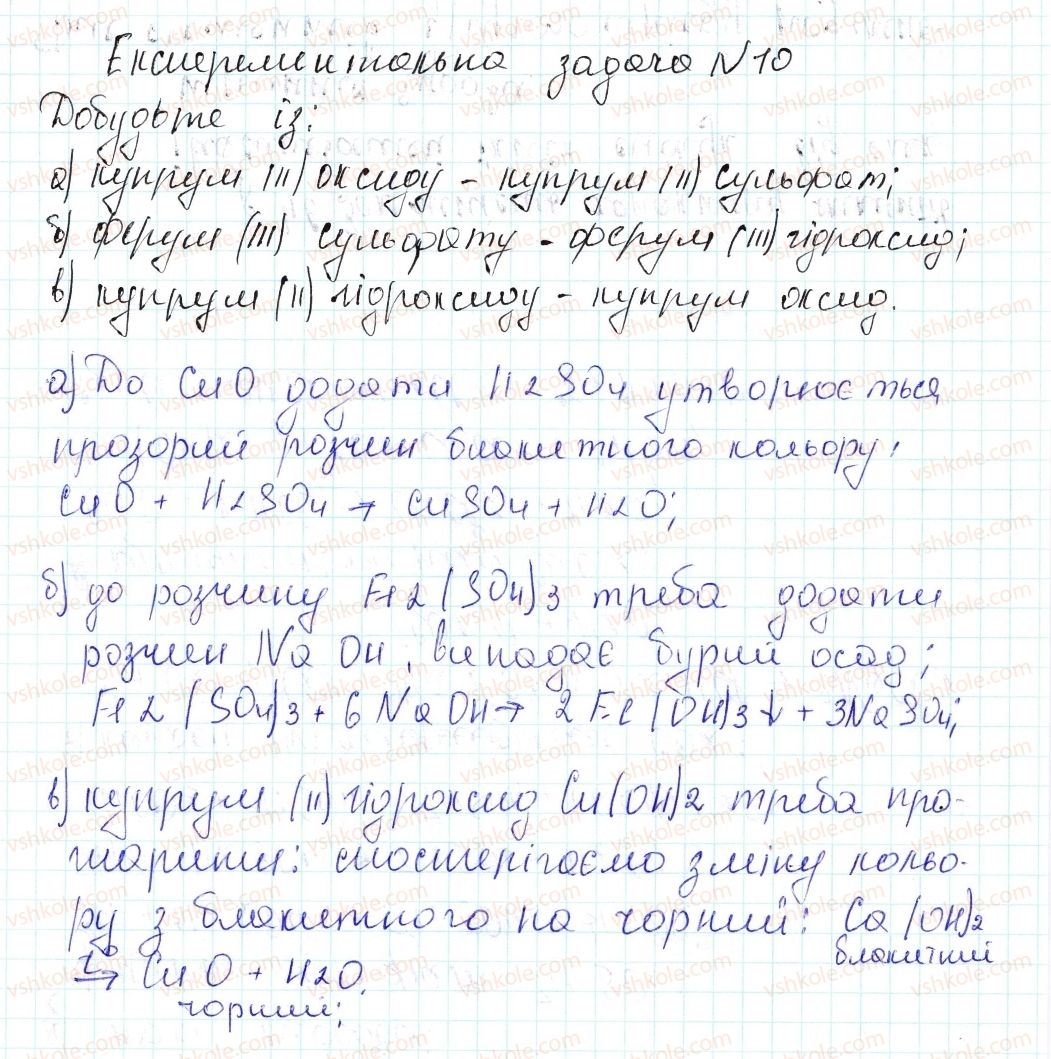 Експериментальна задача N10
Добудьте із:
а) купрум (II) оксиду - купрум (II) сульфат;
б) ферум (III) сульфату - ферум (III) гідроксид;
в) купрум (II) гідроксиду - купрум оксид.
а) До CuO додати H2SO4 утворюється
прозорий розчин блакитного кольору:
CuO + H2SO4 → CuSO4 + H2O;
б) до розчину Fe2(SO4)3 треба додати
розчин NaOH, випадає бурий осад;
Fe2(SO4)3 + 6NaOH → 2Fe(OH)3↓ + 3NaSO4;
в) купрум (II) гідроксид Cu(OH)2 треба про-
жарити: спостерігаємо зміну кольо-
ру з блакитного на чорний: Ca(OH)2
блакитний
t° → CuO + H2O.
чорний;